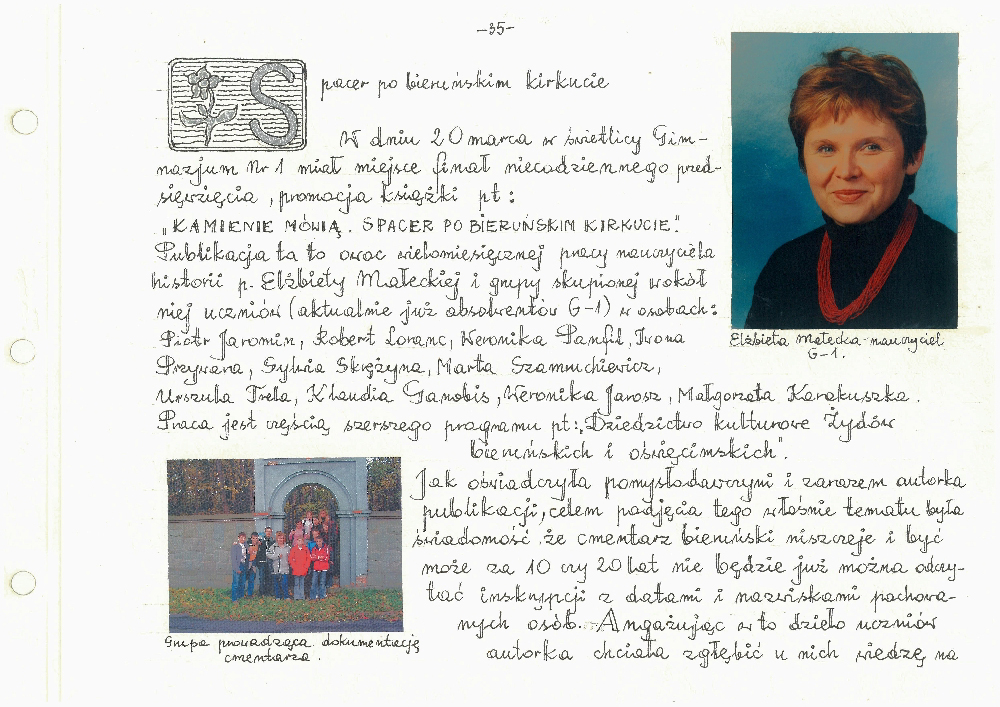 -35-
Spacer po bieruńskim kirkucie
W dniu 20 marca w świetlicy Gim-
nazjum Nr 1 miał miejsce finał niecodziennego przed-
sięwzięcia, promocja książki pt:
„KAMIENIE MÓWIĄ. SPACER PO BIERUŃSKIM KIRKUCIE".
Publikacja ta to owoc wielomiesięcznej pracy nauczyciela
historii p. Elżbiety Małeckiej i grupy skupionej wokół
niej uczniów (aktualnie już absolwentów G-1) w osobach:
Piotr Jaromin, Robert Loranc, Weronika Panfil, Iwona
Przywara, Sylwia Skrężyna, Marta Szamuchiewicz,
Urszula Trela, Klaudia Ganobis, Weronika Jarosz, Małgorzata Karakuszka.
Praca jest częścią szerszego programu pt: „Dziedzictwo kulturowe Żydów
bieruńskich i oświęcimskich".
Elżbieta Małecka - nauczyciel
G-1.
Jak oświadczyła pomysłodawczyni i zarazem autorka
publikacji, celem podjęcia tego właśnie tematu była
świadomość że cmentarz bieruński niszczeje i być
może za 10 czy 20 lat nie będzie już można odczy-
tać inskrypcji z datami i nazwiskami pochowa-
nych osób. Angażując w to dzieło uczniów
autorka chciała zgłębić u nich wiedzę na
Grupa prowadząca dokumentację
cmentarza.